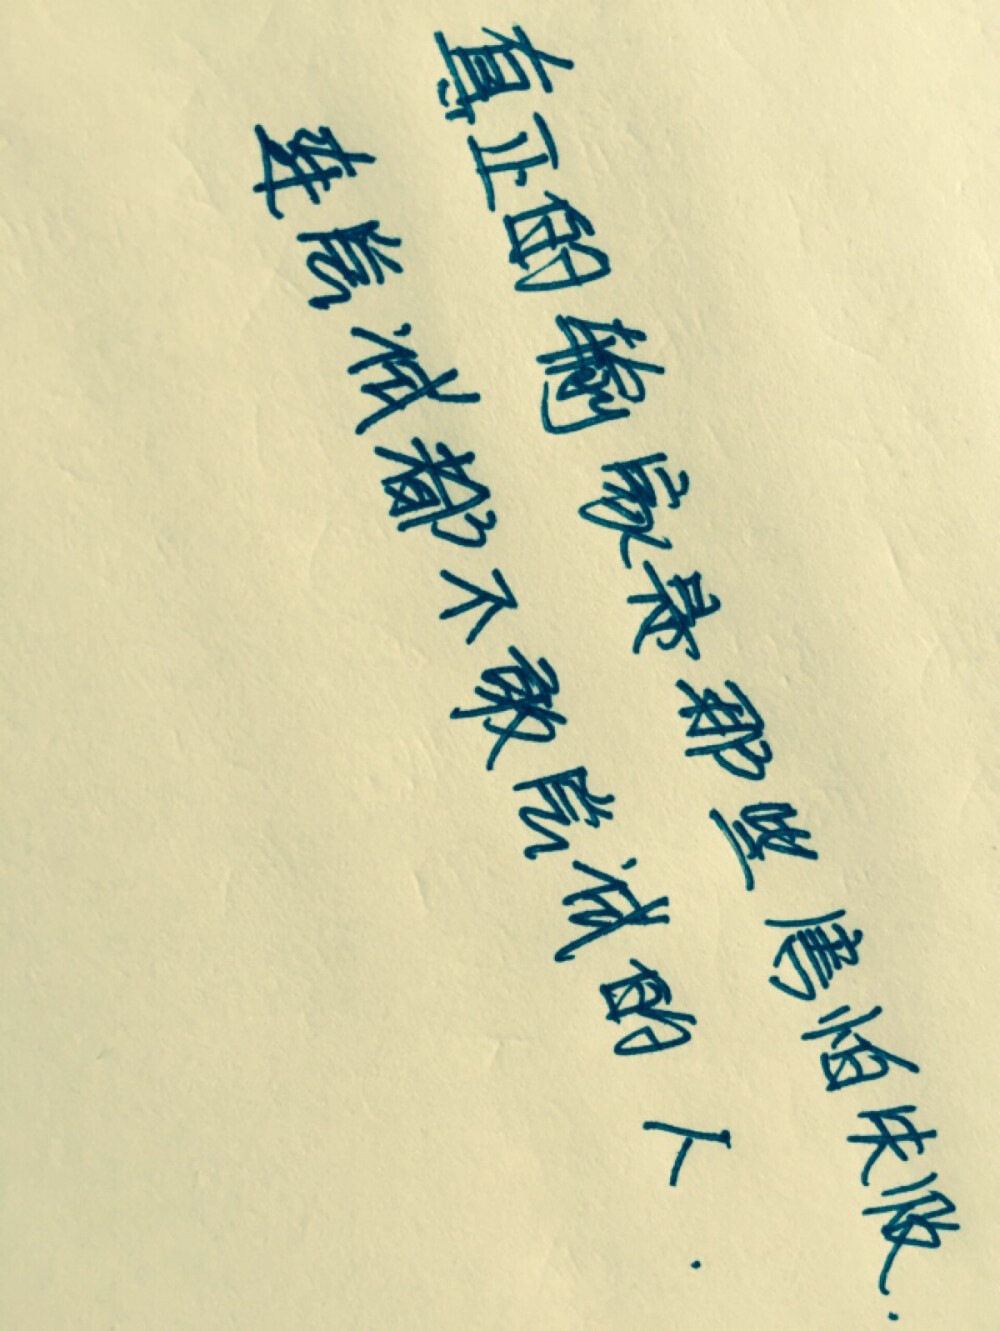 真正的输家是那些害怕失败.
连尝试都不敢尝试的人.